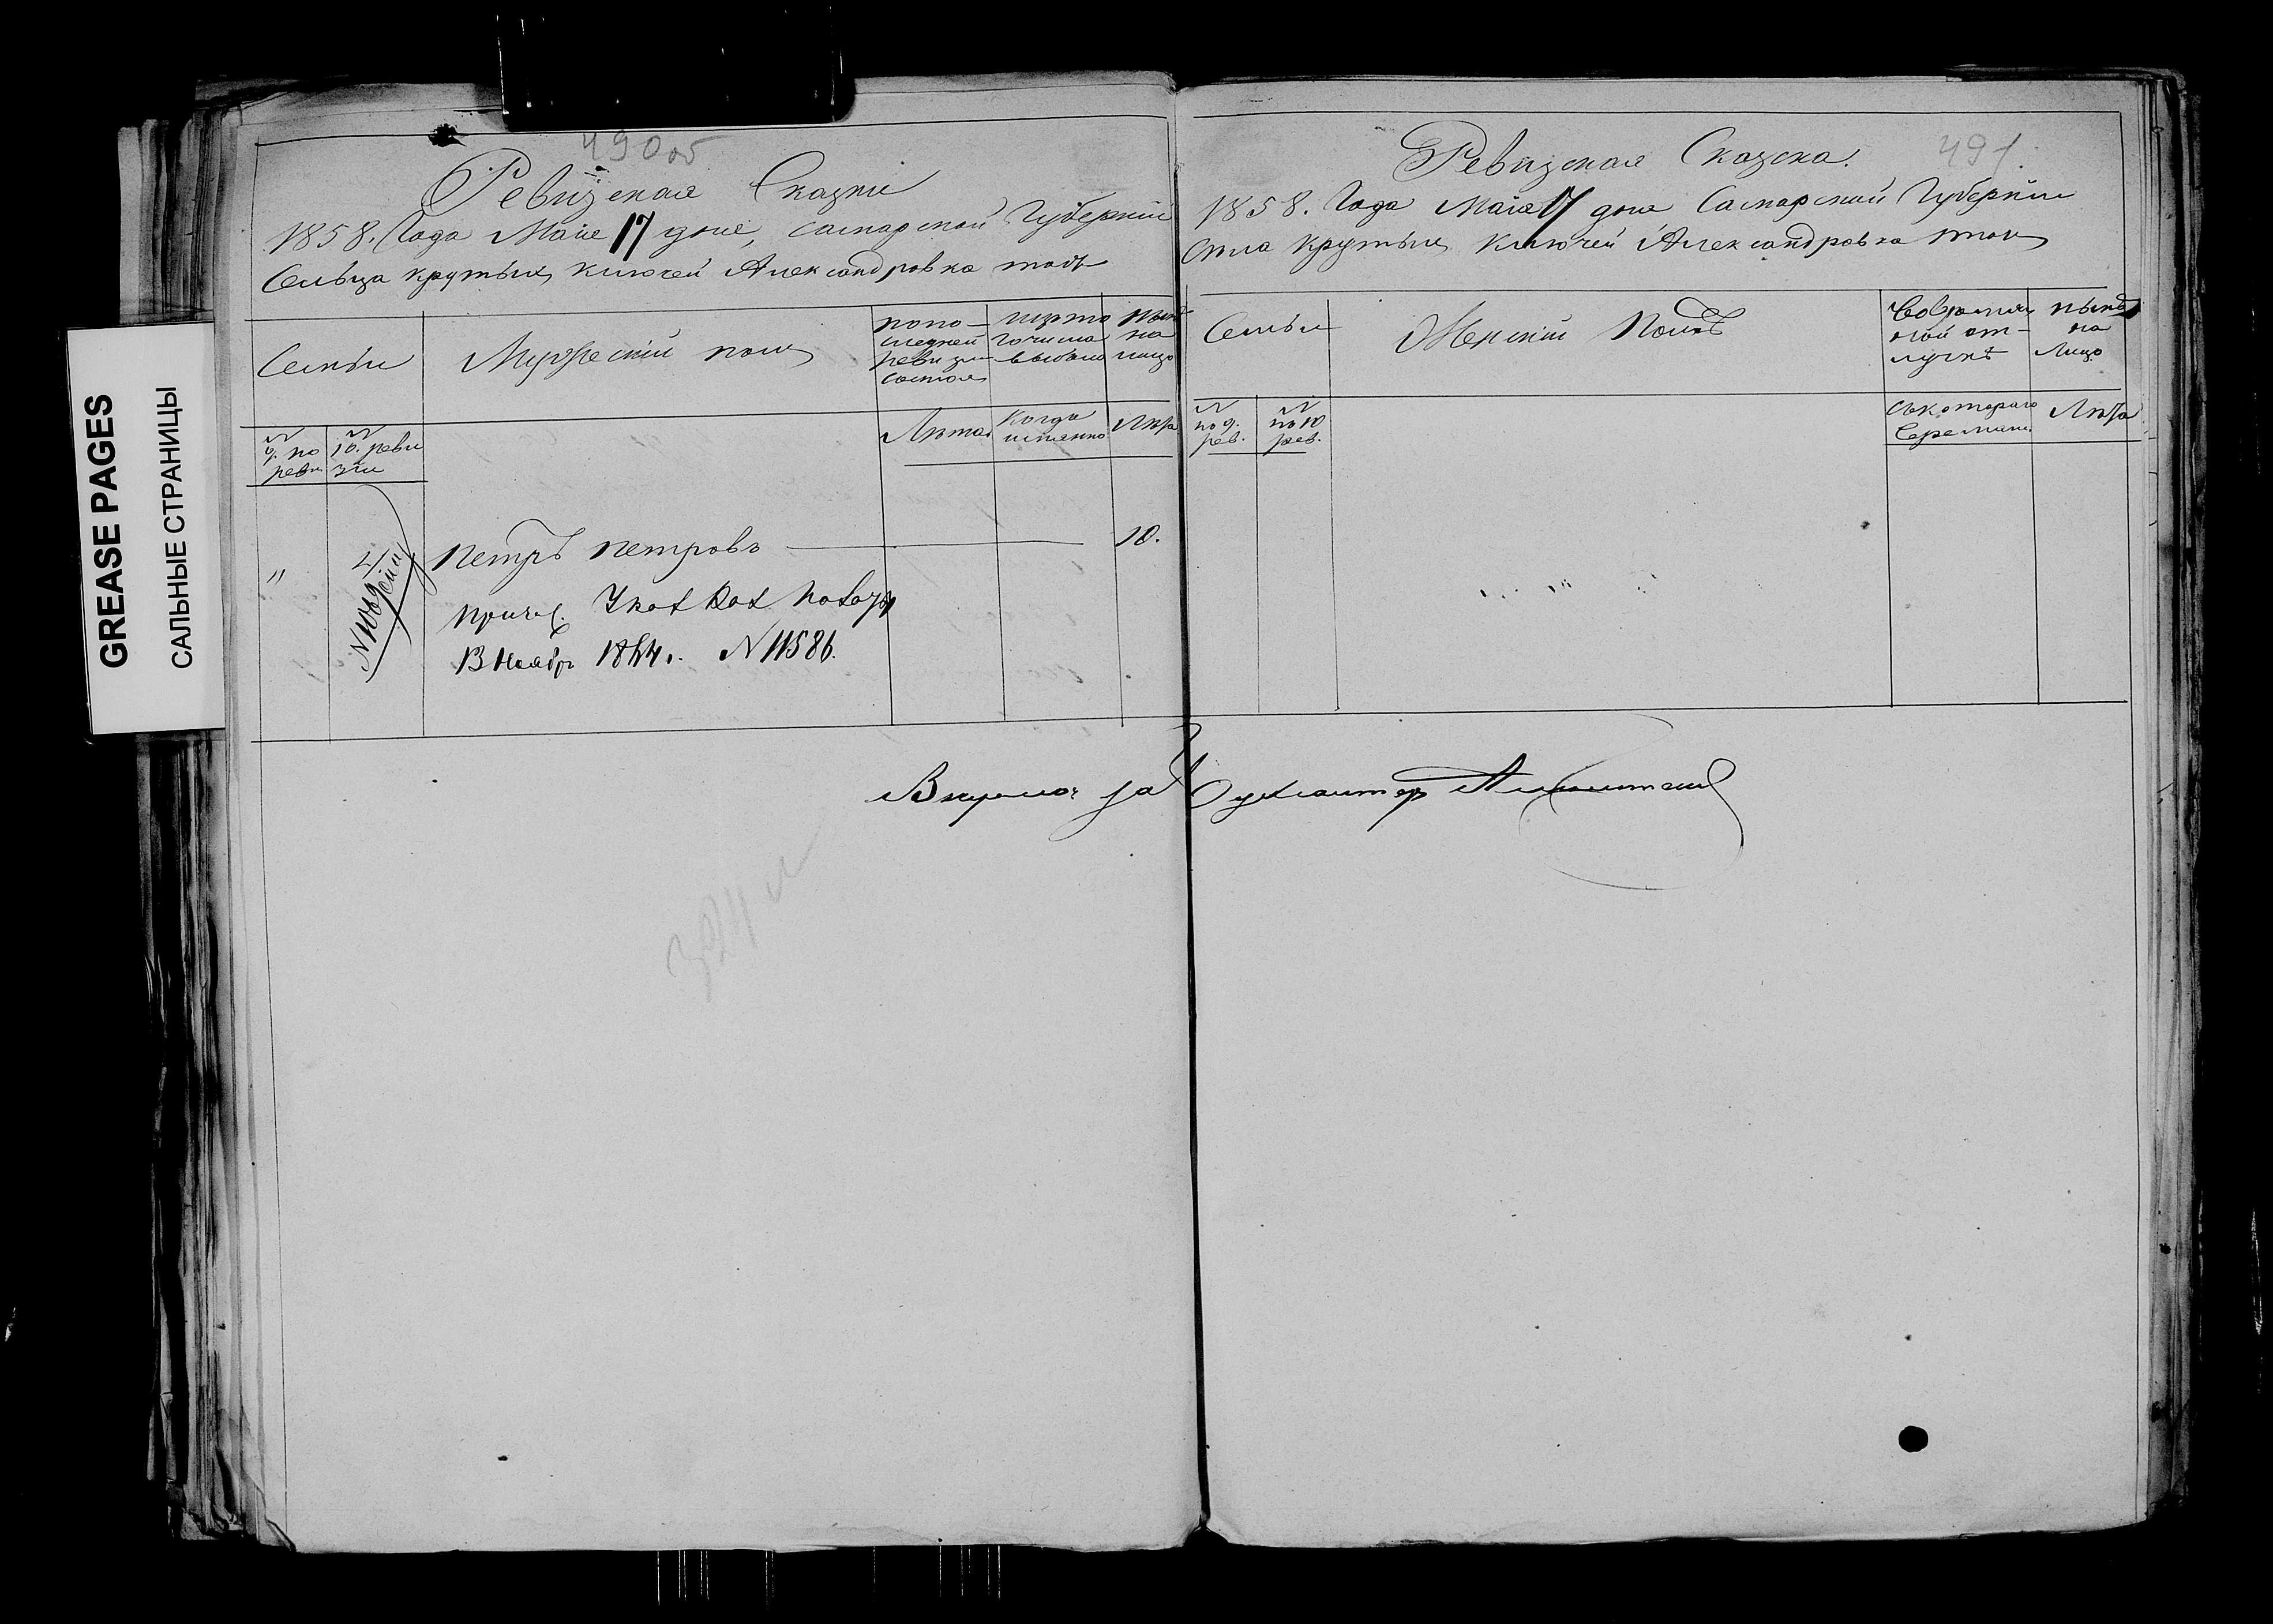 GREASE PAGES
САЛЬНЫЕ СТРАНИЦЫ
490об
Ревизская Сказки
1858. Года Маие 17 дне, Самарской Губернии
Сельца крутых ключей Александровка тожъ
Семьи
Мужеской полъ
попо-
следней
ревизии
состоял
изъ то
го числа
выбыло
ныне
на
лицо
№
9. по
реви
№
10. реви
зии
Лета
когда
именно
Лета
"
4
Петръ петровъ
10.
прич.
Каз Пал
13 Ноябр N 11586.
491.
Ревизская Сказска.
1858. Года Маия 17 дня Самарской Губернии
крутых Ключей Александровка тож
Семьи
Женский Полъ
Во времян
ной от-
лучке
ныне
на
Лицо
№
по 9.
рев.
№
по 10
рев.
съ котораго
времени
Лета
за Бухгалтер